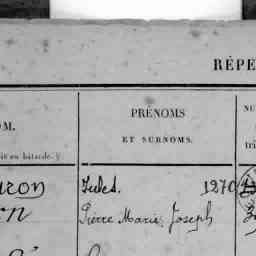 RÉPE
PRÉNOMS
NU
OM.
ET SURNOMS.
en bâtarde.
tri
Jules. 1270
Pierre Marie Joseph